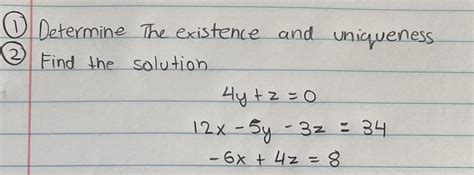 ① Determine The existence and uniqueness
② Find the solution
4y + z = 0
12x - 5y - 3z = 34
-6x + 4z = 8